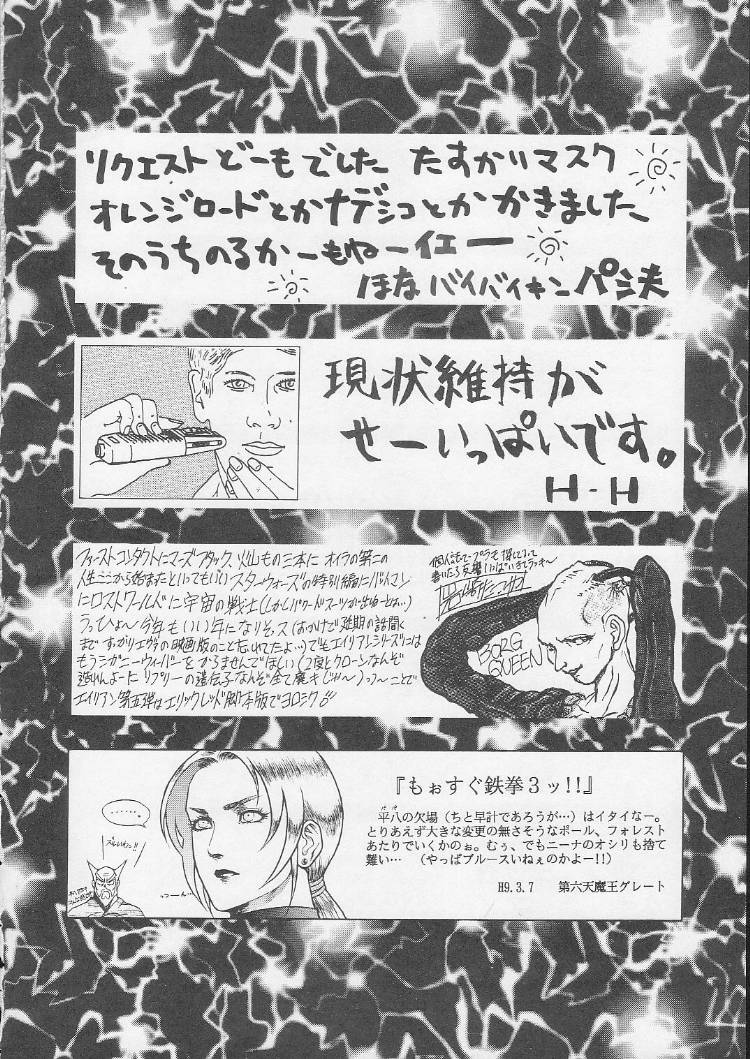 リクエストどーもでした たすかりマスク
オレンジロードとかナデシコとかかきました、
そのうちのるかーもねーイエー
ほな バイバイキン
現状維持が
せーいっぱいです。
H-H
ファーストコンタクトにマーズアタック、火山もの三本に オイラの第二の
人生ここから始まったといってもいい スターウォーズの特別編にバットマン
にロストワールドに宇宙の戦士(しかしパワードスーツが出ねーとは…)
うっひょ〜 今年もいい年になりそース
まですっかりエヴァの映画版のこと忘れてたよ…)でもエイリアンシリーズには
もうシガニーウィーバーをからませんでほしい(2度とクローンなんぞ
エイリアン第五弾はエリックレッド脚本版でヨロシク
BORG
QUEEN
……
っつーん
『もぉすぐ鉄拳3ッ!!』
平八の欠場(ちと早計であろうが…)はイタイなー。
とりあえず大きな変更の無さそうなポール、フォレスト
あたりでいくかのぉ。むぅ、でもニーナのオシリも捨て
難い… (やっぱブルースいねぇのかよー!!)
H9.3.7 第六天魔王グレート